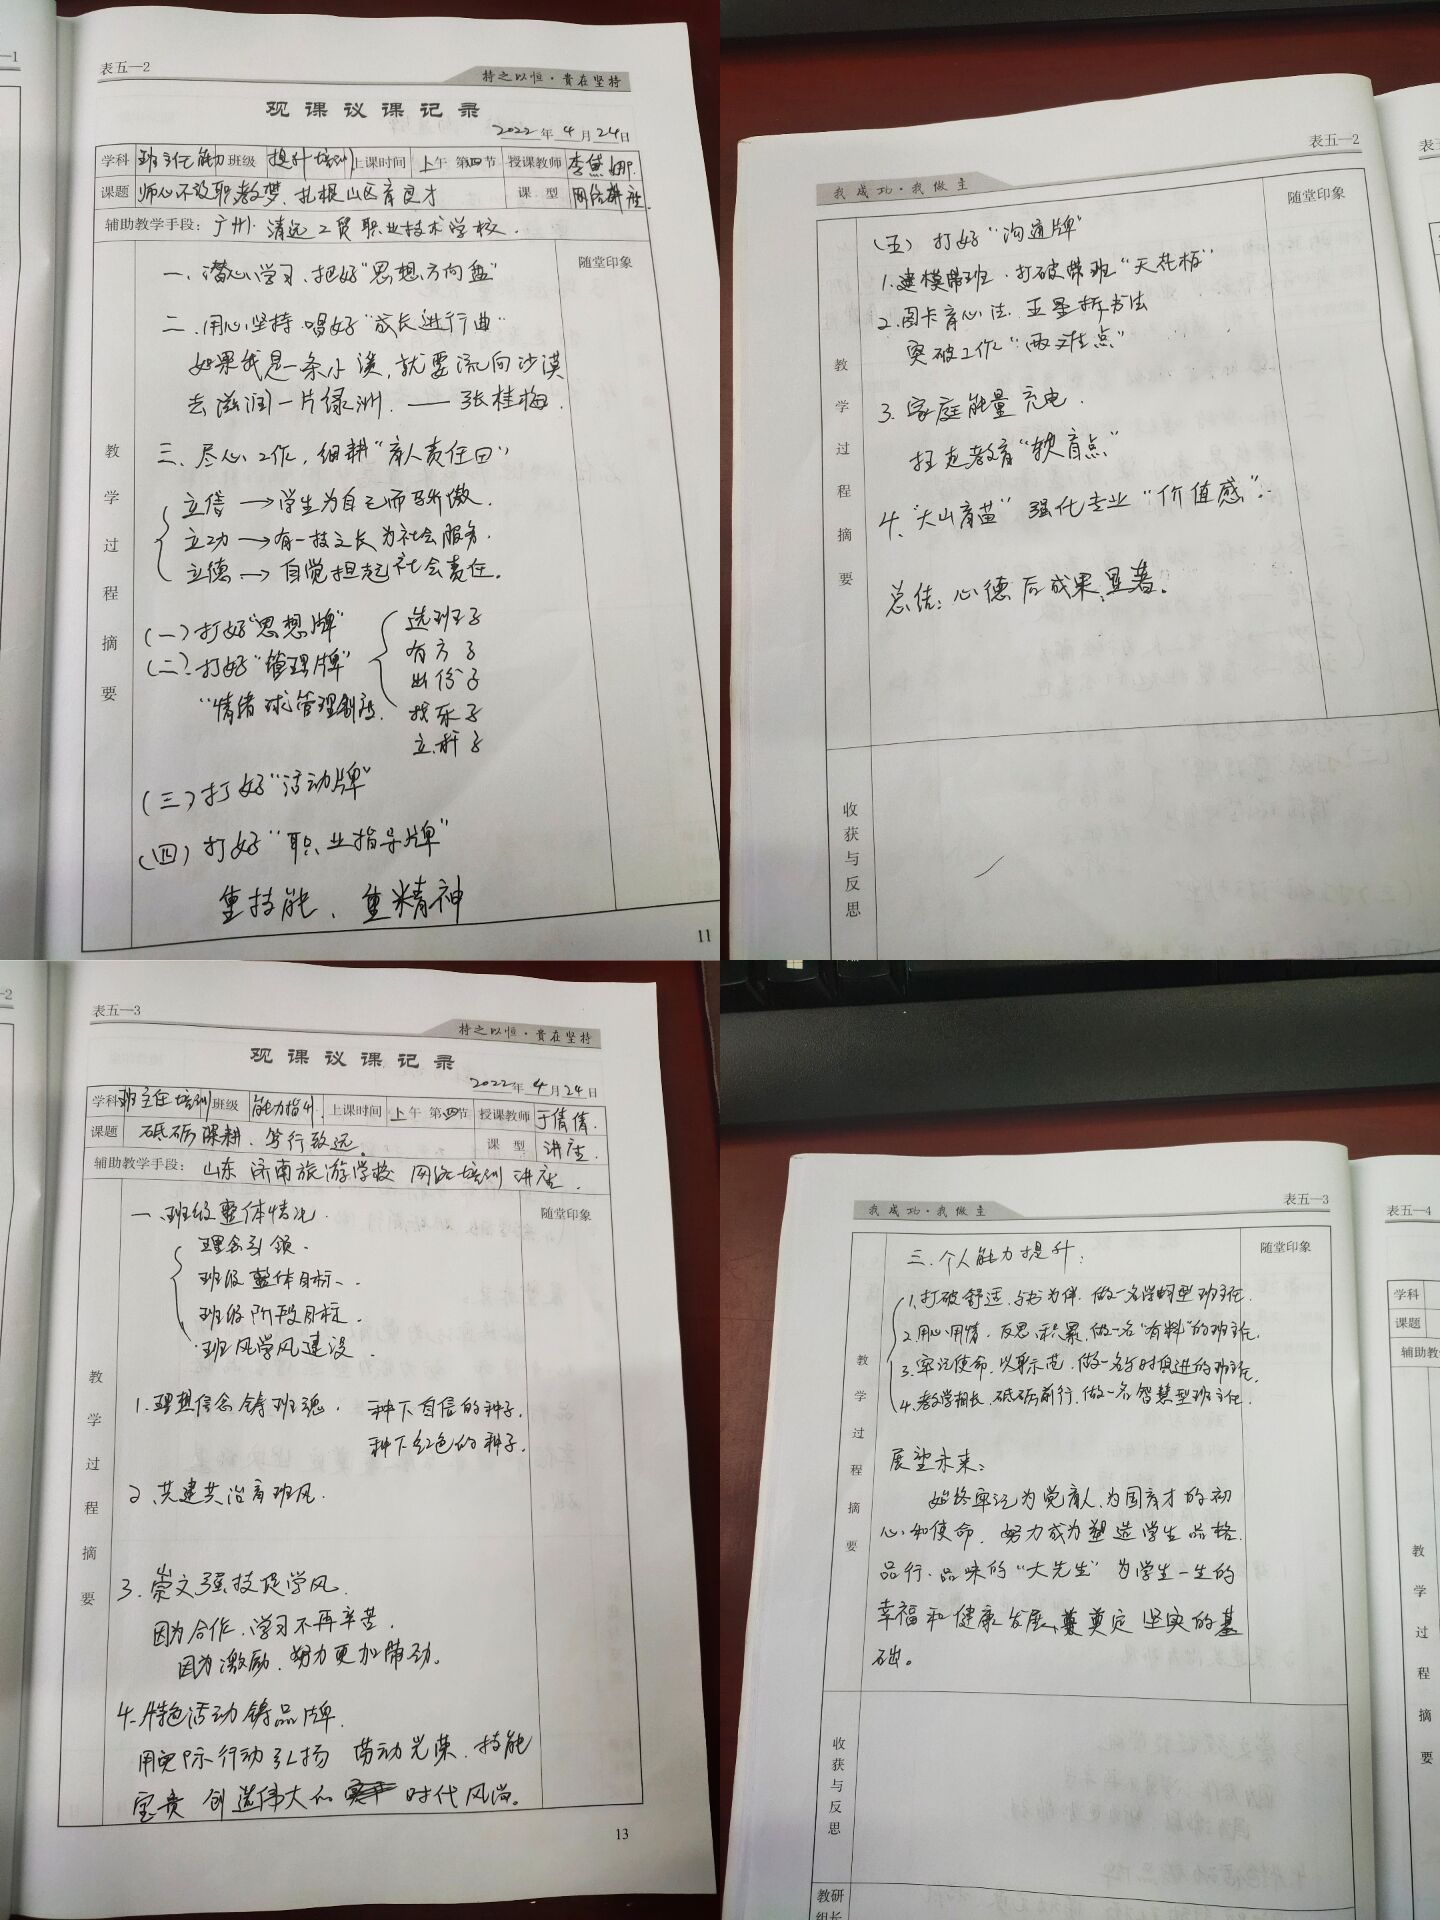 —1
表五—2
持之以恒·贵在坚持
观课议课记录
2022年4月24日
学科 班主任能力 班级 提升培训 上课时间 上午 第四节 授课教师 李黛娜
课题 师心不改职教梦、扎根山区育良才 课型 网络讲座
辅助教学手段：广州·清远工贸职业技术学校.
教学过程摘要
随堂印象
一、潜心学习、把好“思想方向盘”
二、用心坚持 唱好“成长进行曲”
如果我是一条小溪，就要流向沙漠
去滋润一片绿洲. —— 张桂梅.
三、尽心工作，细耕“育人责任田”
立信 → 学生为自己而骄傲.
立功 → 有一技之长为社会服务.
立德 → 自觉担起社会责任.
(一) 打好“思想牌”
(二). 打好“管理牌”
“情绪球管理制度.
选班子
有方子
出份子
找乐子
立杆子
(三) 打好“活动牌”
(四) 打好“职业指导牌”
重技能、重精神
11
表五—2
我成功·我做主
随堂印象
教学过程摘要
(五) 打好“沟通牌”
1.建模带班、打破带班“天花板”
2.图卡育心法、拆书法
突破工作“两难点”
3.家庭能量充电.
扫走教育“软肓点”
4、“大山育苗” 强化专业“价值感”.
总结：心德后成果显著。
收获与反思
表五
—2
表五—3
持之以恒·贵在坚持
观课议课记录
2022年4月24日
学科 班主任培训 班级 能力提升 上课时间 上午 第四节 授课教师 于倩倩.
课题 砥砺深耕、笃行致远。 课型 讲座.
辅助教学手段：山东 济南旅游学校 网络培训讲座.
教学过程摘要
随堂印象
一、班级整体情况.
理念引领.
班级整体目标、.
班级阶段目标.
班风学风建设.
1.理想信念铸班魂. 种下自信的种子.
种下红色的种子.
2、共建共治育班风.
3.崇文强技促学风.
因为合作、学习不再辛苦.
因为激励、努力更加带劲。
4.特色活动铸品牌.
用实际行动引扬 劳动光荣、技能
宝贵 创造伟大的 时代风尚。
13
我成功·我做主
表五—3
随堂印象
教学过程摘要
三.个人能力提升：
1.打破舒适、与书为伴、做一名学习型班主任.
2.用心用情、反思积累、做一名“有料”的班主任.
3.牢记使命、以身示范、做一名与时俱进的班主任.
4.教学相长、砥砺前行、做一名智慧型班主任.
展望未来：
始终牢记为党育人、为国育才的初
心和使命、努力成为塑造学生品格.
品行、品味的“大先生”为学生一生的
幸福和健康发展、奠定坚实的基
础。
收获与反思
教研
组长
表五—4
学科
课题
辅助教
教学过程摘要